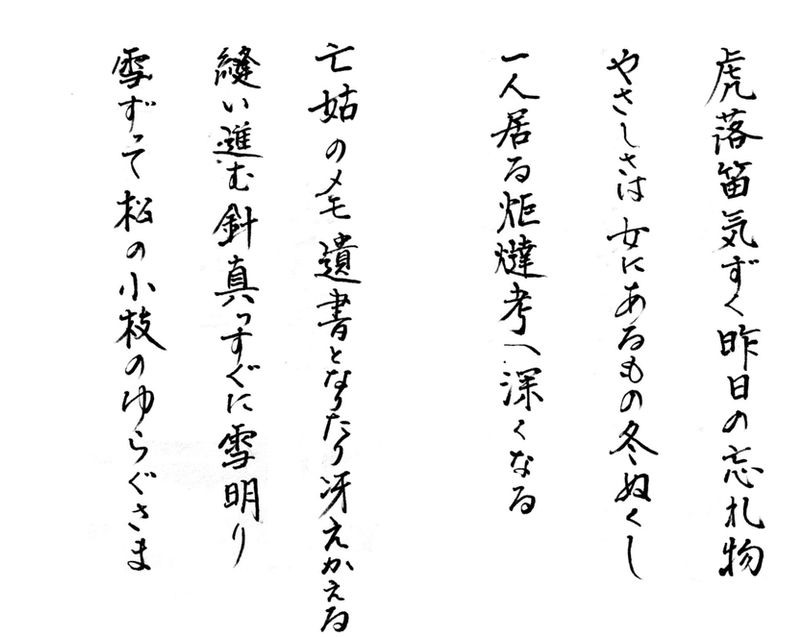 虎落笛気ずく昨日の忘れ物
やさしさは女にあるもの冬ぬくし
一人居る炬燵考へ深くなる
亡姑のメモ遺書となりたり冴えかえる
縫い進む針真っすぐに雪明り
雪ずって松の小枝のゆらぐさま